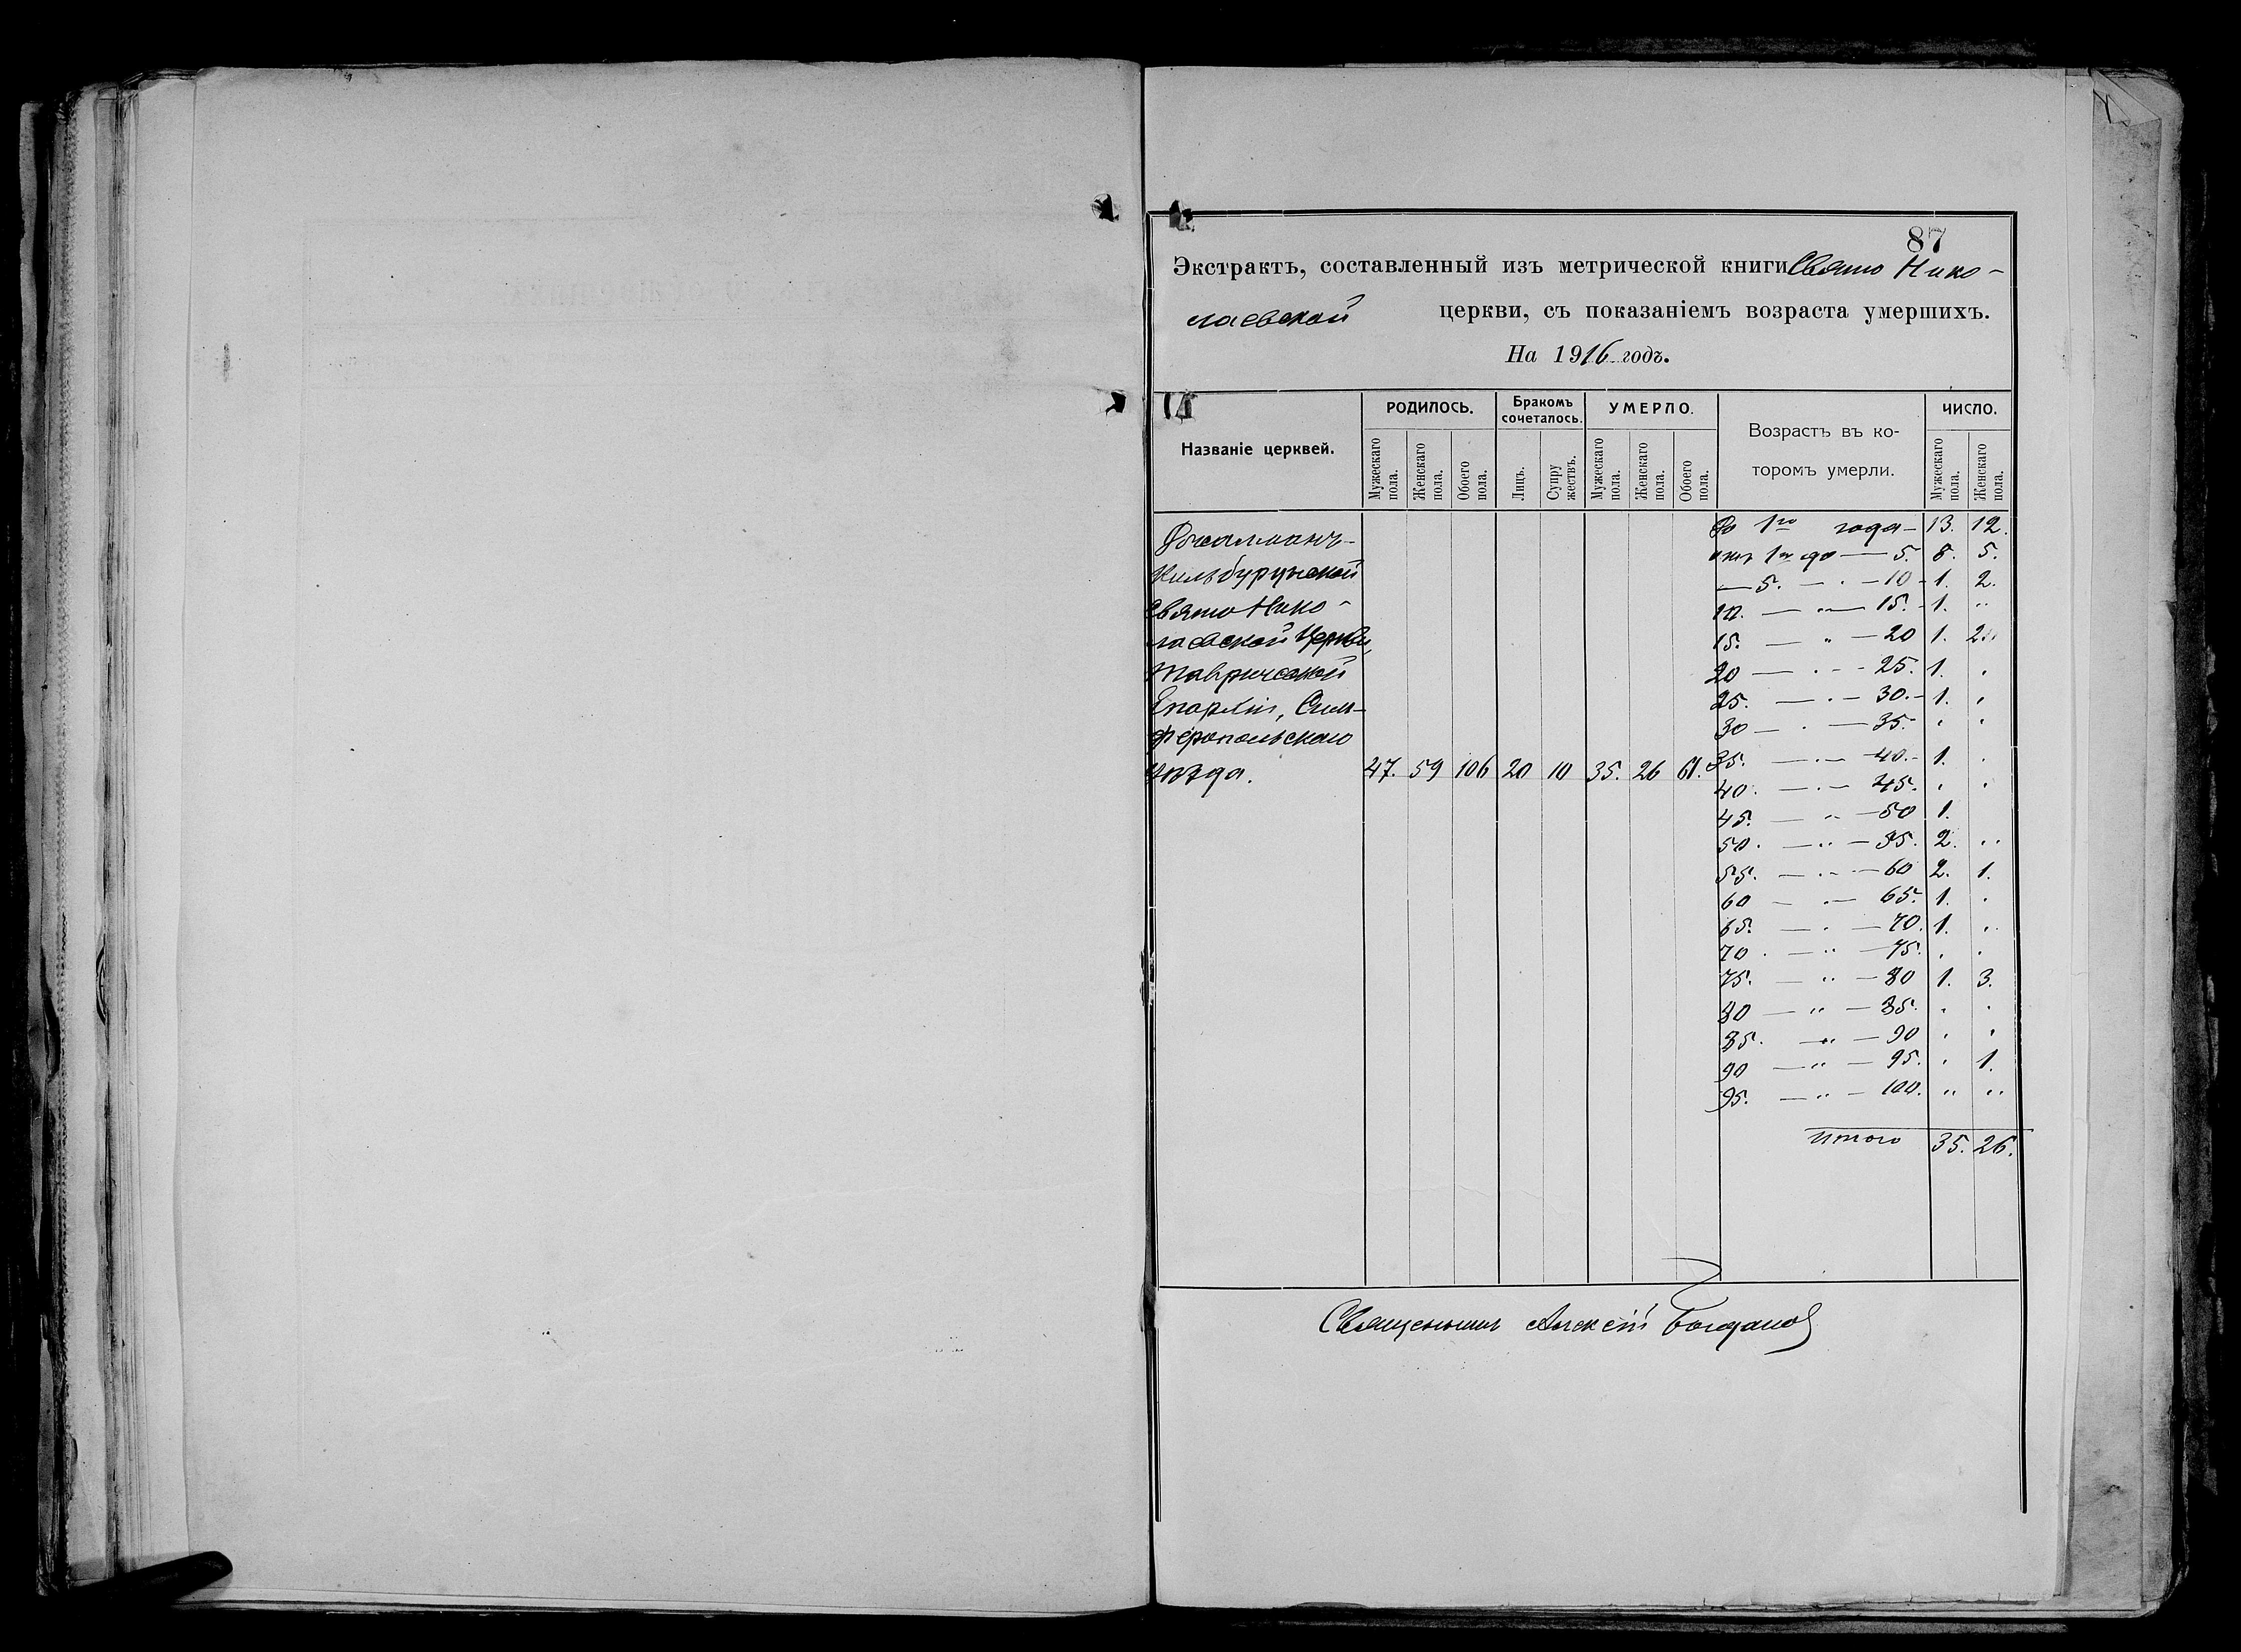 87
Экстрактъ, составленный изъ метрической книги Свято Нико-
лаевской церкви, съ показаніемъ возраста умершихъ.
На 1916 годъ.
Названіе церквей.
РОДИЛОСЬ.
Бракомъ сочеталось.
УМЕРЛО.
Возрастъ въ ко-
торомъ умерли.
ЧИСЛО.
Мужескаго пола.
Женскаго пола.
Обоего пола.
Лицъ.
Супру жествъ.
Мужескаго пола.
Женскаго пола.
Обоего пола.
Мужескаго пола.
Женскаго пола.
Джалманъ-
Кильбурунской
Свято Нико-
лаевской Церкви,
Таврической
Епархіи, Сим-
феропольскаго
уѣзда. 47. 59 106 20 10 35. 26 61.
До 1го года - 13. 12.
отъ 1го до — 5. 8. 5.
— 5. — " — 10 - 1. 2.
10. — " — 15. - 1. "
15. — " — 20 1. 2.
20 — " — 25. 1. "
25. — " — 30. - 1. "
30 — " — 35. " "
35. — " — 40. - 1. "
40. — " — 45. " "
45. — " — 50 1.
50. — " — 55. 2. "
55. — " — 60 2. 1.
60 — " — 65. 1. "
65. — " — 70. 1. "
70. — " — 75. " "
75. — " — 80 1. 3.
80 — " — 85. " "
85. — " — 90 " "
90 — " — 95. " 1.
95. — " — 100. " "
Итого 35. 26.
Священникъ Алексій Богданов